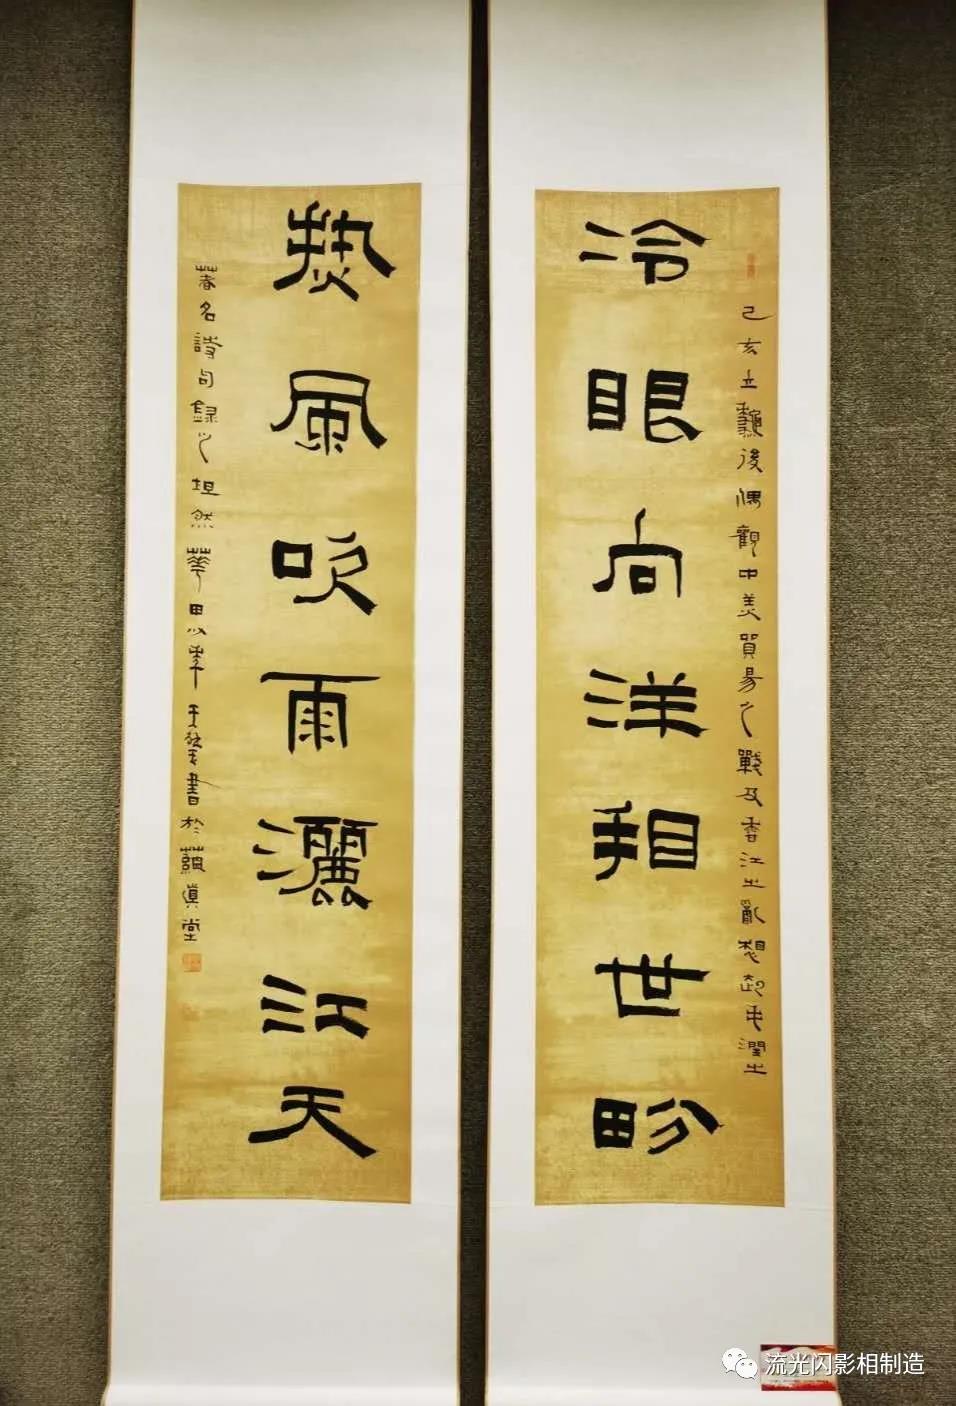 己亥立龝後偶觀中美貿易之戰及香江之亂想起毛潤之
冷眼向洋看世畍
热風吹雨灑江天
著名詩句録之坦然華 書於蘊真堂
流光闪影相制造